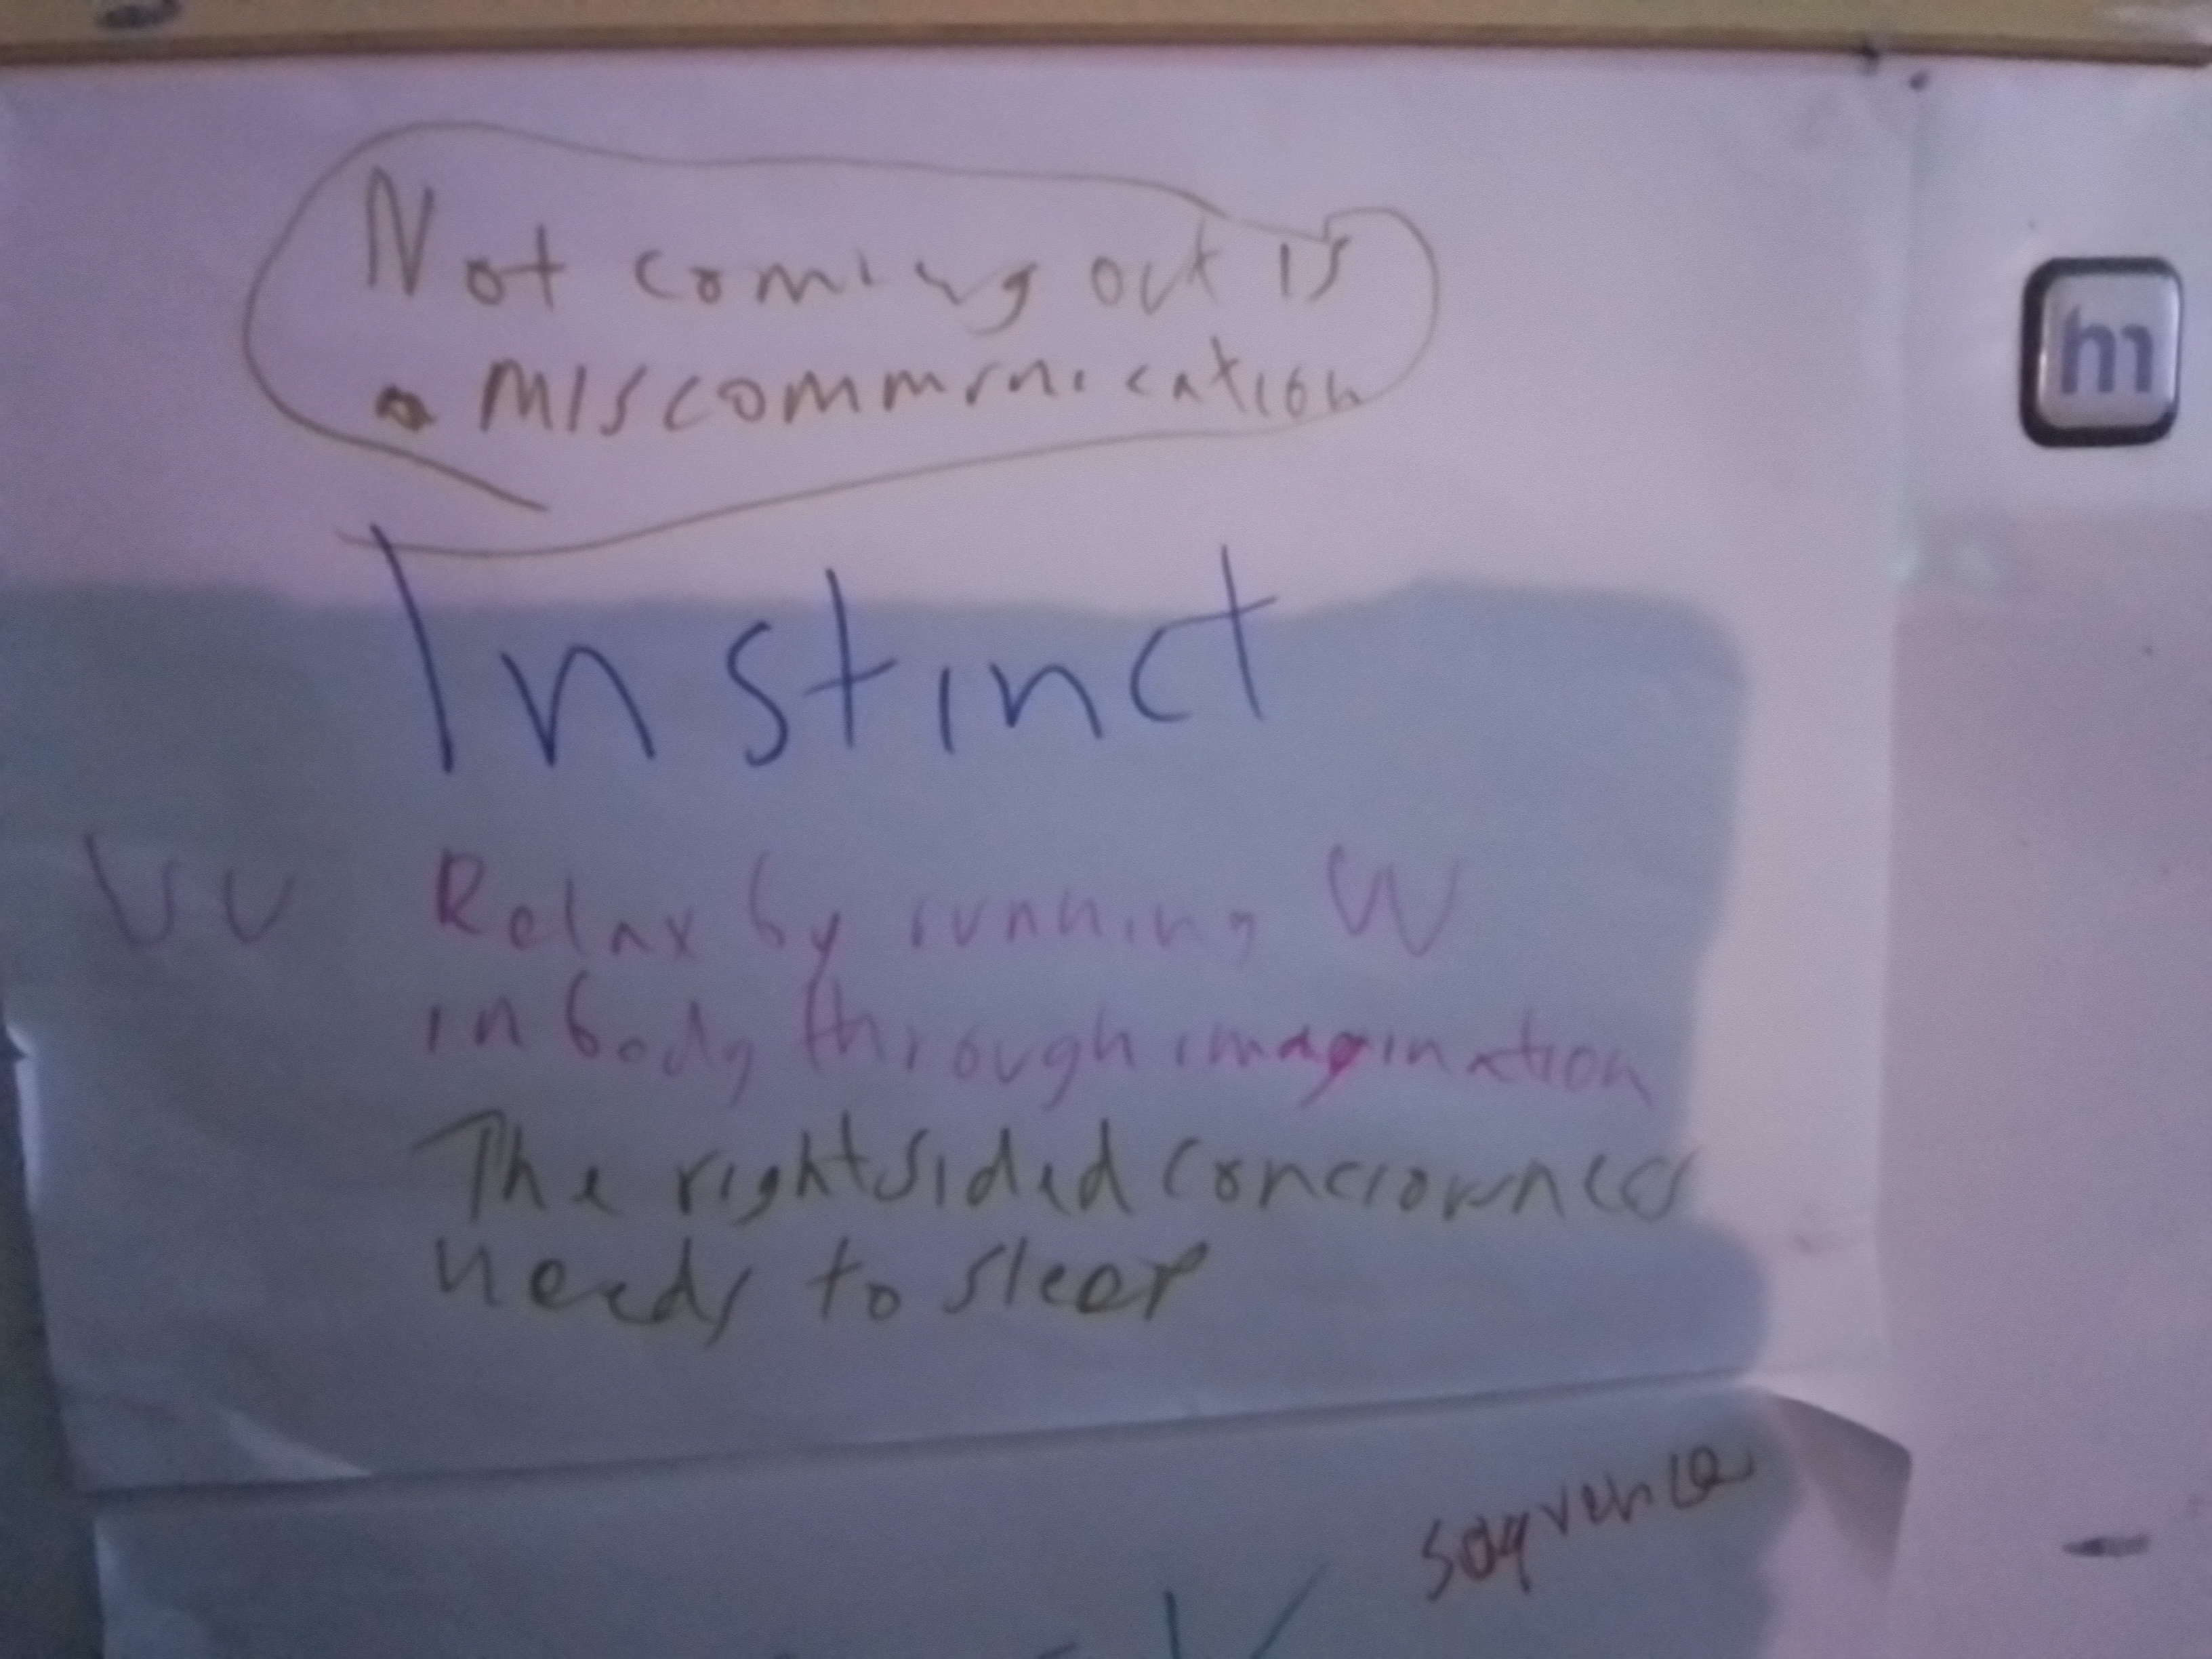 Not coming out is
a miscommunication
Instinct
UU Relax by running W
in body through imagination
The rightsided conciowness
needs to sleep
sequence
m